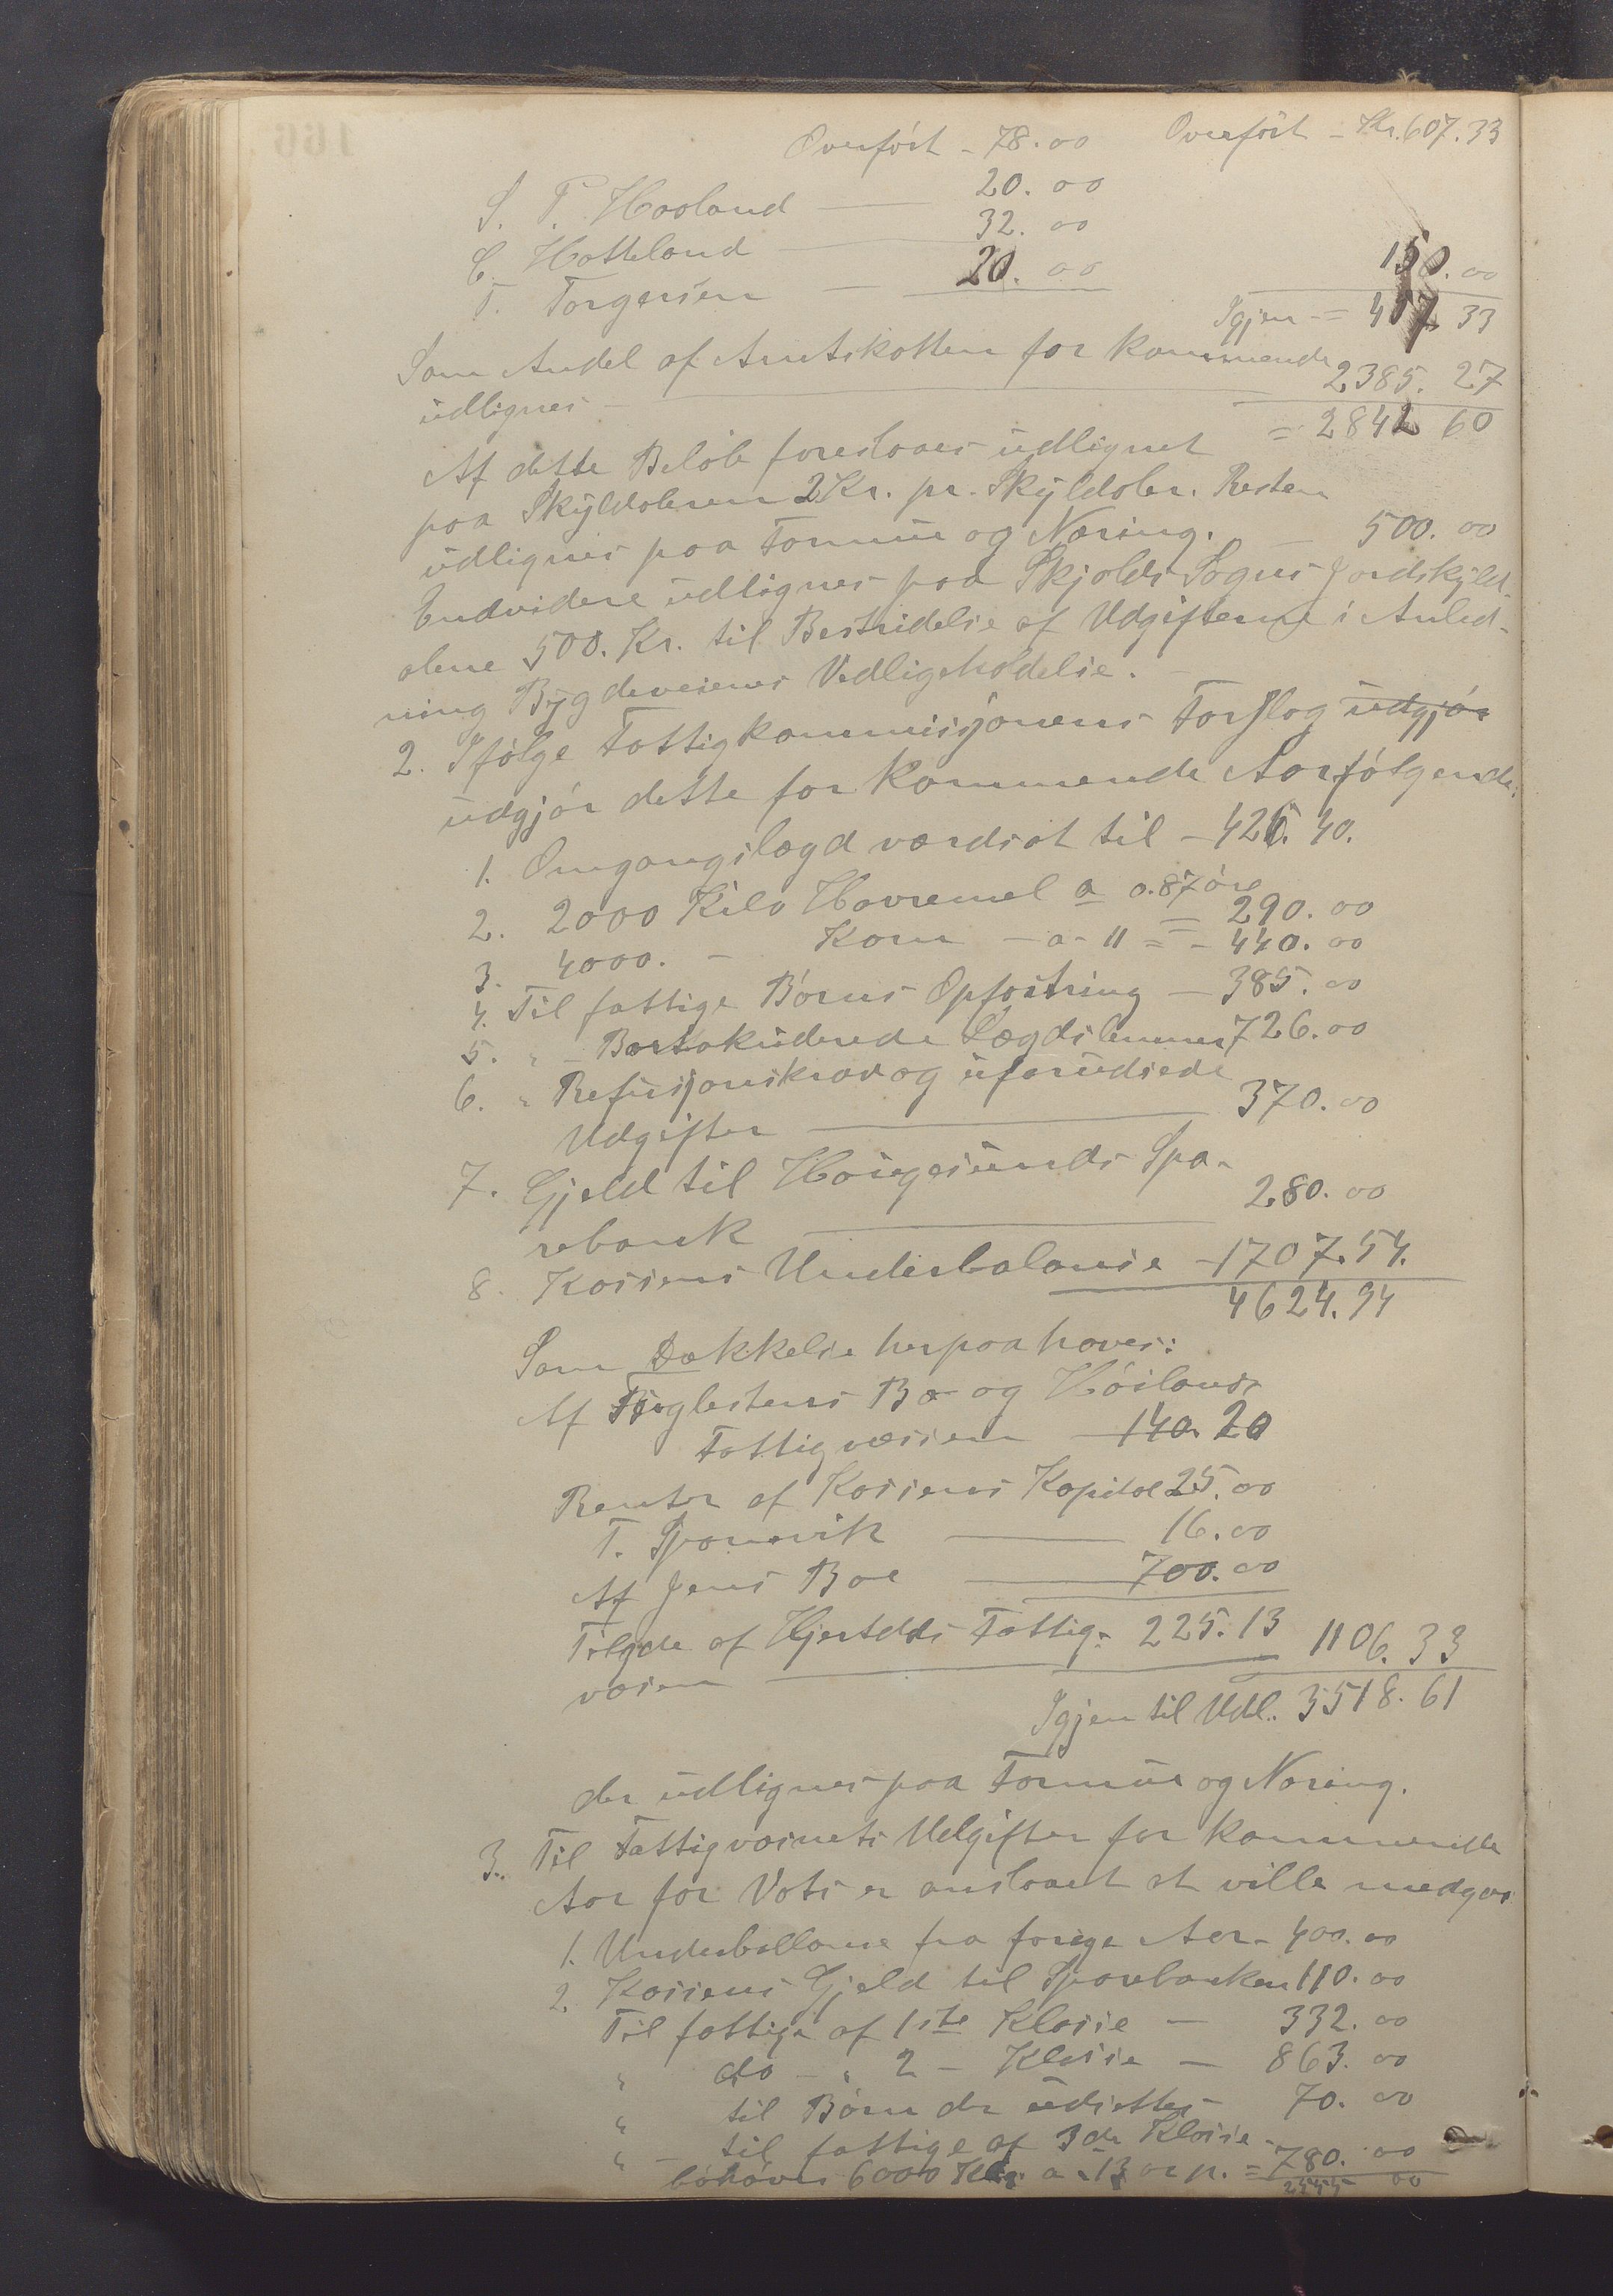 Overført - 78.00 Overført - Kr. 607.33
S. T. Haaland — 20.00
C. Hatteland — 32.00
T. Torgersen — 20.00 150.00
Igjen = 457 33
Som Andel af Amtskatten for kommende
udlignes — 2385.27
= 2842 60
Af dette Beløb foreslaaes udlignet
paa Skyldøren 2 Kr. pr. Skyldøre. Resten
udlignes paa Formue og Næring. — 500.00
Endvidere udlignes paa Skjolds Sogns Jordskyld-
ørene 500. Kr. til Bestridelse af Udgifterne i Anled-
ning Bygdeveienes Vedligeholdelse. -
2. Ifølge Fattigkommissjonens Forslag udgjør
udgjør dette for kommende Aar følgende:
1. Omgangslægd værdsat til - 426.40.
2. 2000 Kilo Havremel a 0.87 øre = 290.00
3. 4000. - Korn - a - 11 = - 440.00
4. Til fattige Børns Opfostring - 385.00
5. " - Bortakkuderede Lægdslemmer 726.00
6. " Refusjonskrav og uforudsede
Udgifter — 370.00
7. Gjeld til Haugesunds Spa-
rebank — 280.00
8. Kassens Underbalanse - 1707.54.
4624.94
Som Dækkelse herpaa haves:
Af Fuglestens Bo og Høilands
Fattigvæsen — 140.20
Renter af Kassens Kapital 25.00
T. Spannvik — 16.00
Af Jens Boe — 700.00
Tilgde af Hjertdals Fattig- 225.13 1106.33
væsen —
Igjen til Udl.. 3518.61
der udlignes paa Formue og Næring.
3. Til Fattigvæsnets Udgifter for kommende
Aar for Vats er anslaaet at ville medgaa
1. Underballanse fra forige Aar - 400.00
2. Kassens Gjeld til Sparebanken 110.00
Til fattige af 1ste Klasse — 332.00
" do - " 2 - Klasse — 863.00
" til Børn der udsettes - 70.00
" - til fattige af 3de Klasse
behøves 6000 Kilo a - 13 ør p. = 780.00
2555 00